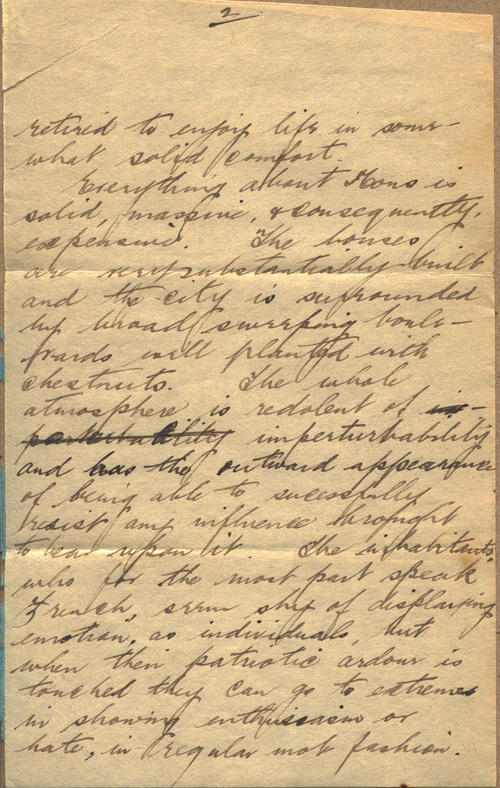 2
retired to enjoy life in some-
what solid comfort.
Everything about Mons is
solid, massive, & consequently,
expensive. The houses
are very substantially built
and the city is surrounded
by broad sweeping boule-
vards well planted with
chestnuts. The whole
atmosphere is redolent of im-
perturbability imperturbability
and has the outward appearance
of being able to sucessfully
resist any influence brought
to bear upon it. The inhabitants,
who for the most part speak
French, seem shy of displaying
emotion, as individuals, but
when their patriotic ardour is
touched they can go to extremes
in showing enthusiasm or
hate, in regular mob fashion.